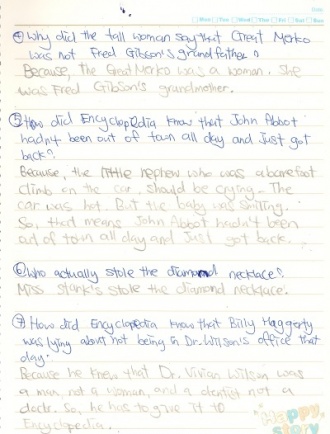 ④ Why did the tall woman say that Great Merko
was not Fred Gibson's grandfather?
Because, the Great Merko was a woman. She
was Fred Gibson's grandmother.
⑤ How did Encyclopedia know that John Abbot
hadn't been out of town all day and Just got
back?
Because, the little nephew who was a barefoot
climb on the car, should be crying. The
car was hot. But the baby was smiling.
So, that means John Abbot hadn't been
out of town all day and Just got back.
⑥ Who actually stole the diamond necklace?
Miss Stark's stole the diamond necklace.
⑦ How did Encyclopedia know that Billy Haggerty
was lying about not being in Dr. Wilson's office that
day?
Because he knew that Dr. Vivian Wilson was
a man, not a woman, and a dentist not a
doctor. So, he has to give it to
Encyclopedia.
Happy
story